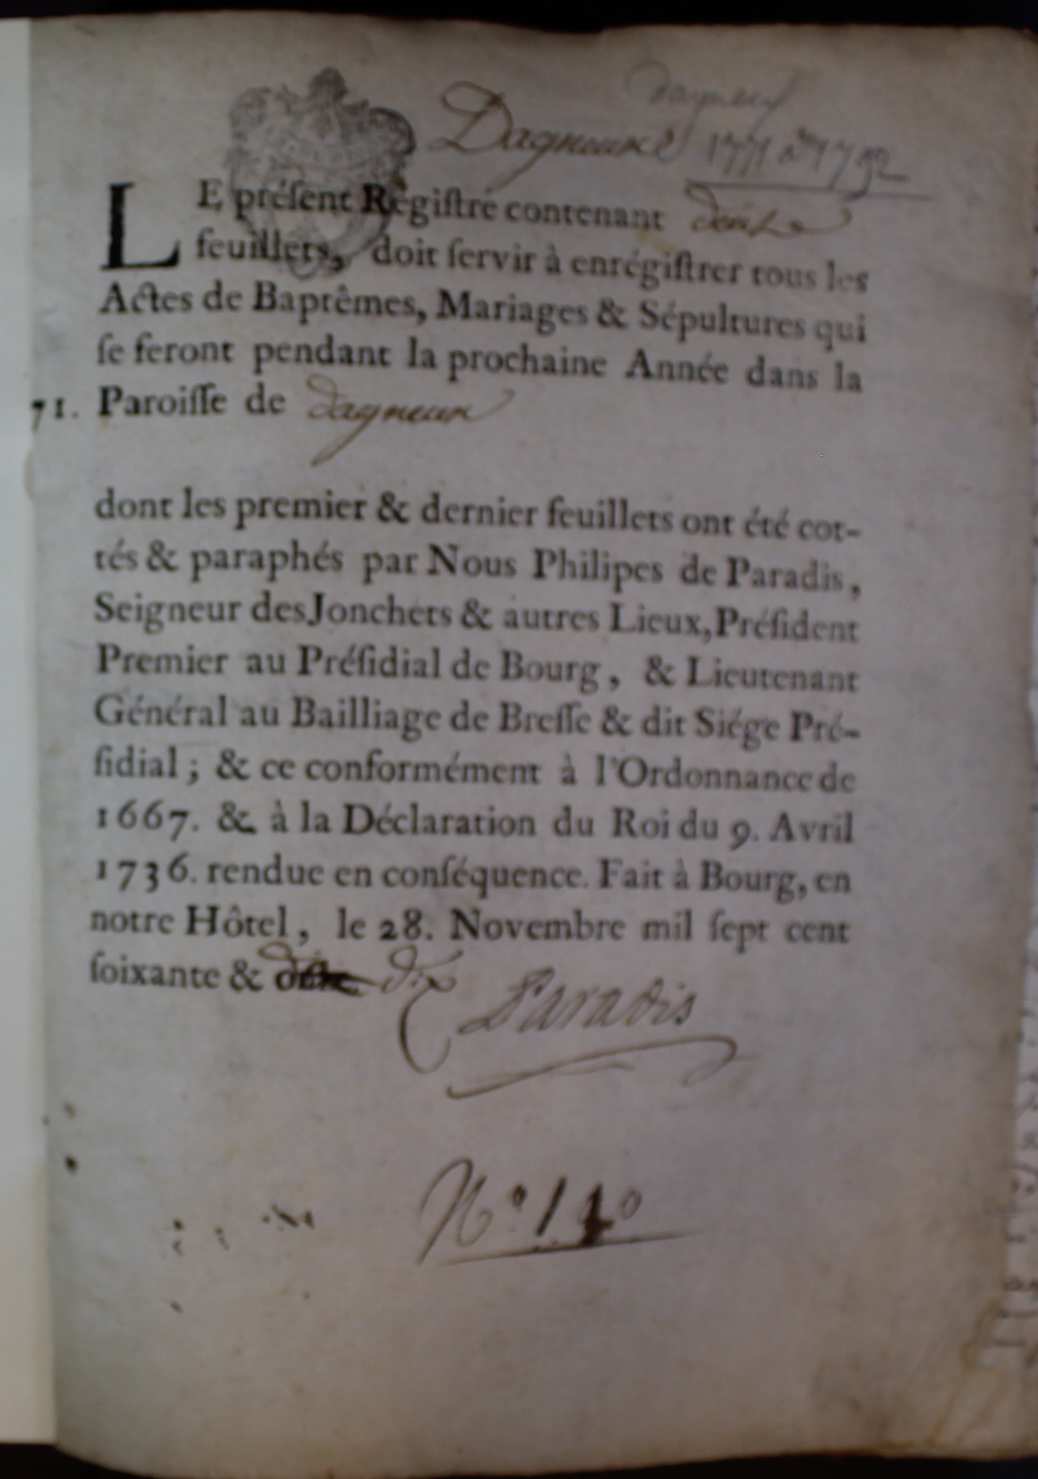 Dagneux
Dagneux 1771 à 1792
LE préſent Régiſtre contenant
feuillets, doit ſervir à enrégiſtrer tous les
Actes de Baptêmes, Mariages & Sépultures qui
ſe feront pendant la prochaine Année dans la
71. Paroiſſe de Dagneux
dont les premier & dernier feuillets ont été cot-
tés & paraphés par Nous Philipes de Paradis,
Seigneur des Jonchets & autres Lieux, Préſident
Premier au Préſidial de Bourg, & Lieutenant
Général au Bailliage de Breſſe & dit Siége Pré-
ſidial; & ce conformément à l'Ordonnance de
1667. & à la Déclaration du Roi du 9. Avril
1736. rendue en conſéquence. Fait à Bourg, en
notre Hôtel, le 28. Novembre mil ſept cent
ſoixante & dix Paradis
N.° 140